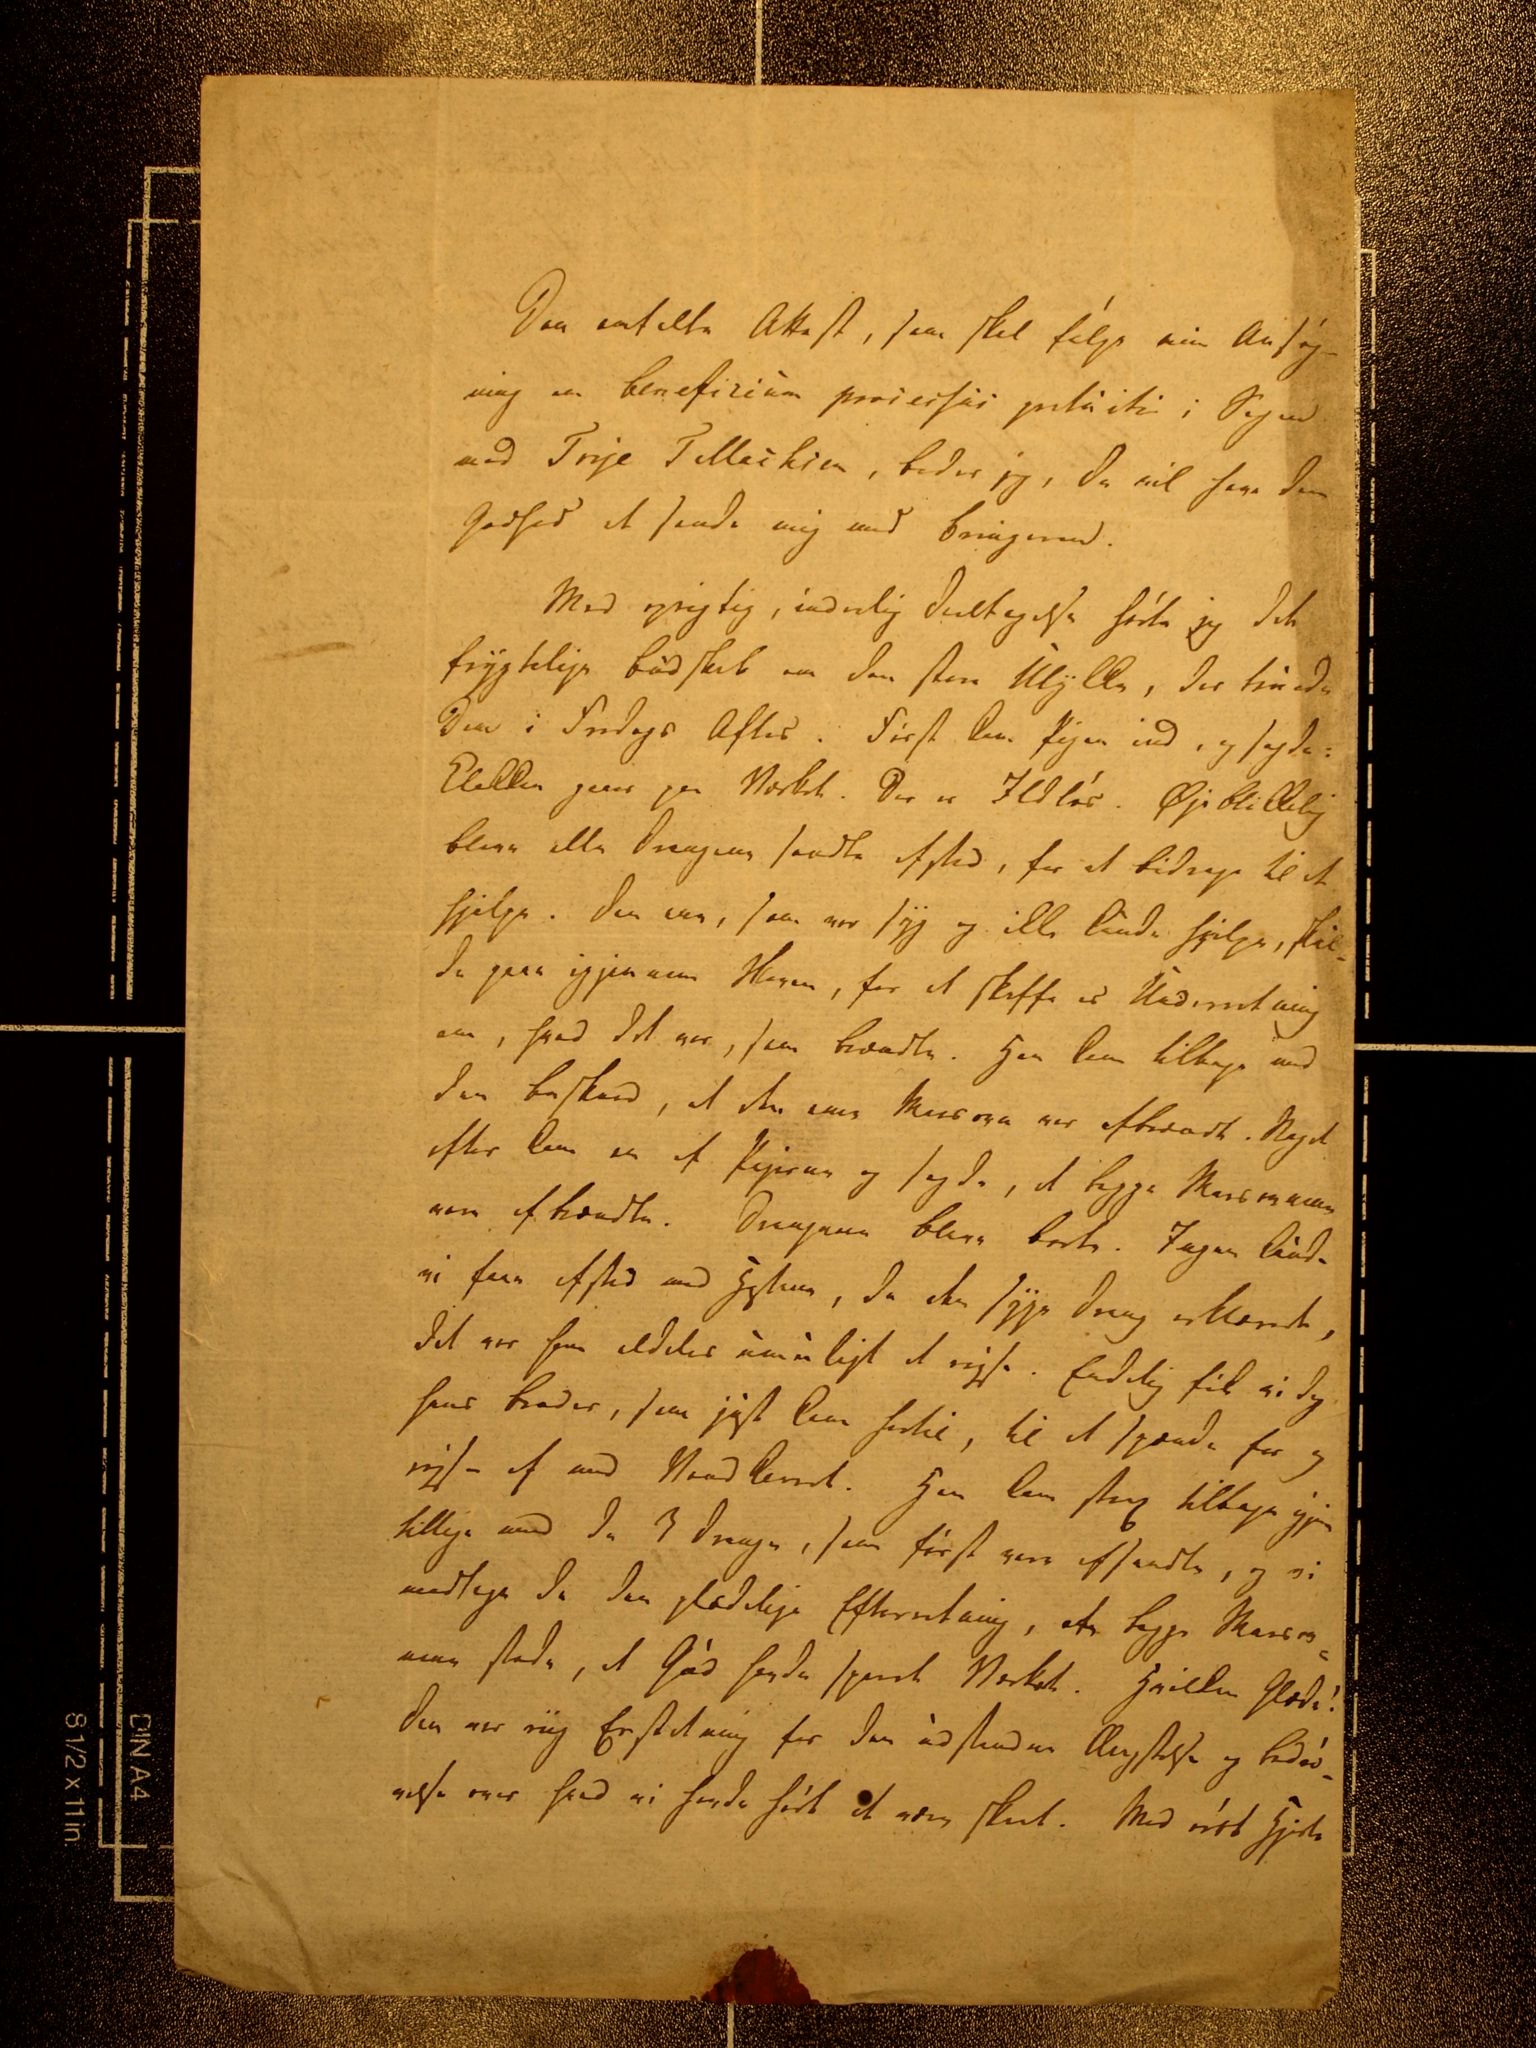 Den omtalte Attest, som skal følge min Ansøg-
ning om beneficium processus gratuiti i Sagen
med Terje Tellachsen, beder jeg, De vil have den
Godhed at sende mig med Bringeren.
Med oprigtig, inderlig Deeltagelse hørte jeg det
frygtelige Budskab om den store Ulykke, der truede
Dem i Fredags Aftes. Først kom Pigen ind, og sagde:
Klokken gaaer paa Værket. Der er Ildløs. Øjeblikkelig
bleve alle Drengene sendte afsted, for at bidrage til at
hjelpe. Den ene, som var syg og ikke kunde hjelpe, skul-
de gaae igjennem Haven, for at skaffe os Underretning
om, hvad det var, som brændte. Han kom tilbage med
den Beskeed, at den ene Masovn var afbrændt. Noget
efter kom en af Pigerne og sagde, at begge Masovnene
vare afbrændte. Drengene bleve borte. Ingen kunde
vi faae afsted med Hestene, da den syge Dreng erklærede,
det var ham aldeles umuligt at rejse. Endelig fik vi dog
hans Broder, som just kom hertil, til at spænde for og
rejse af med Vandkarret. Han kom strax tilbage igjen
tillige med de 3 Drenge, som først vare afsendte, og vi
modtoge da den glædelige Efterretning, at begge Masov-
nene stode, at Gud havde sparet Værket. Hvilken Glæde!
Den var riig Erstatning for den udstandne Ængstelse og Bedrø-
velse over hvad vi havde hørt at være skeet. Med rørt Hjerte
8 1/2 x 11 in.
DIN A4